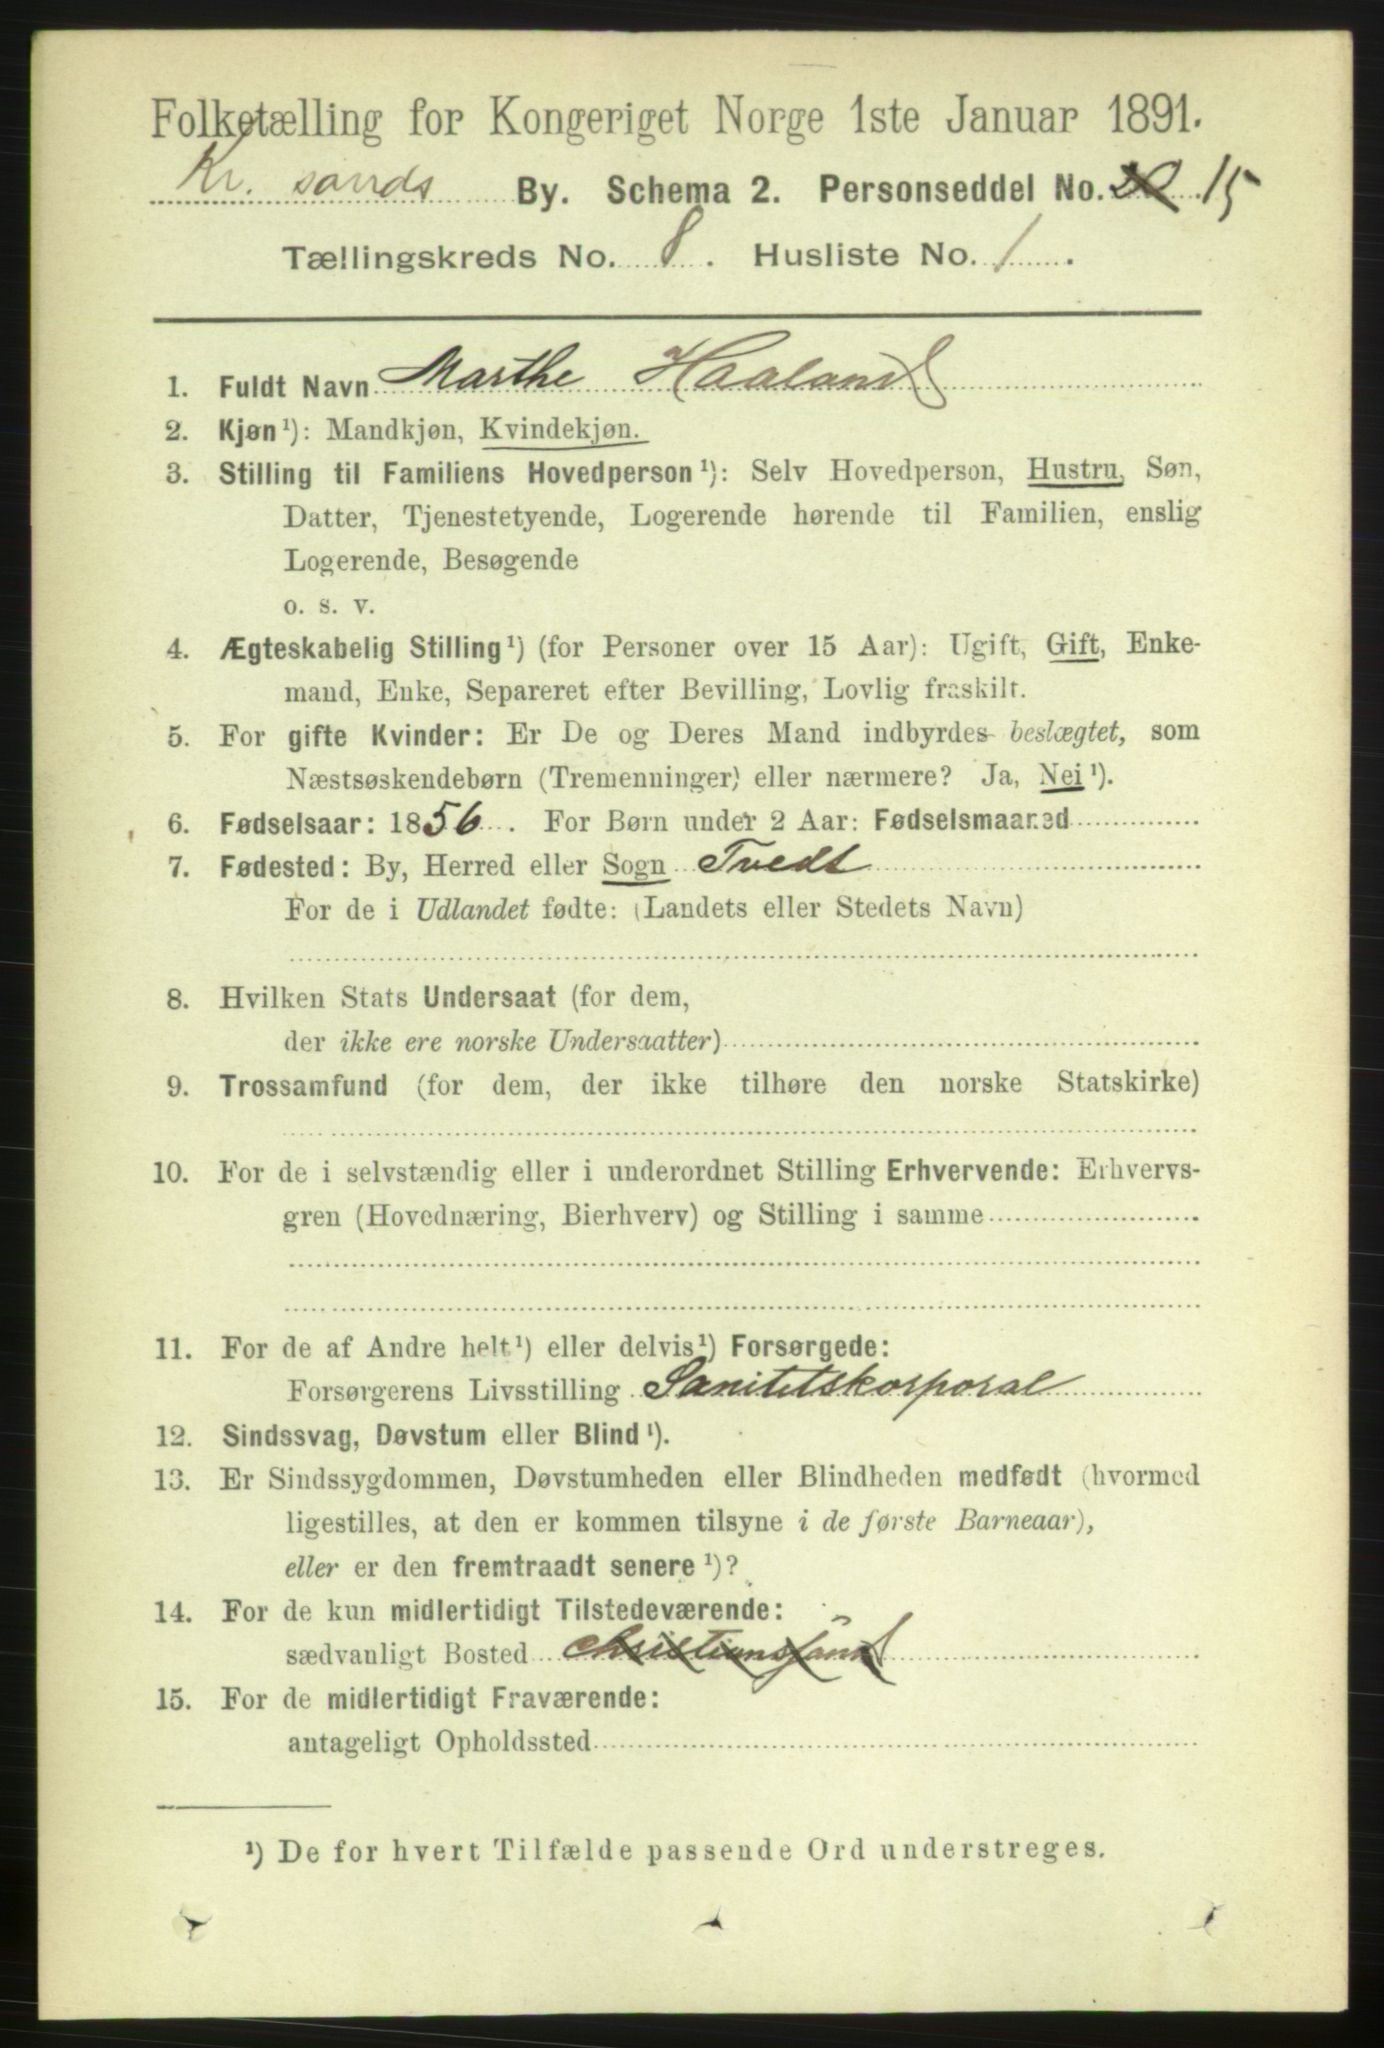 Folketælling for Kongeriget Norge 1ste Januar 1891.
Kr. sands By. Schema 2. Personseddel No. 20 15
Tællingskreds No. 8. Husliste No. 1.
1. Fuldt Navn Marthe Haaland
2. Kjøn¹): Mandkjøn, Kvindekjøn.
3. Stilling til Familiens Hovedperson¹): Selv Hovedperson, Hustru, Søn,
Datter, Tjenestetyende, Logerende hørende til Familien, enslig
Logerende, Besøgende
o. s. v.
4. Ægteskabelig Stilling¹) (for Personer over 15 Aar): Ugift, Gift, Enke-
mand, Enke, Separeret efter Bevilling, Lovlig fraskilt.
5. For gifte Kvinder: Er De og Deres Mand indbyrdes beslægtet, som
Næstsøskendebørn (Tremenninger) eller nærmere? Ja, Nei¹).
6. Fødselsaar: 1856. For Børn under 2 Aar: Fødselsmaaned
7. Fødested: By, Herred eller Sogn Tvedt
For de i Udlandet fødte: (Landets eller Stedets Navn)
8. Hvilken Stats Undersaat (for dem,
der ikke ere norske Undersaatter)
9. Trossamfund (for dem, der ikke tilhøre den norske Statskirke)
10. For de i selvstændig eller i underordnet Stilling Erhvervende: Erhvervs-
gren (Hovednæring, Bierhverv) og Stilling i samme
11. For de af Andre helt¹) eller delvis¹) Forsørgede:
Forsørgerens Livsstilling Sanitetskorporal
12. Sindssvag, Døvstum eller Blind¹).
13. Er Sindssygdommen, Døvstumheden eller Blindheden medfødt (hvormed
ligestilles, at den er kommen tilsyne i de første Barneaar),
eller er den fremtraadt senere¹)?
14. For de kun midlertidigt Tilstedeværende:
sædvanligt Bosted Christianssand
15. For de midlertidigt Fraværende:
antageligt Opholdssted
¹) De for hvert Tilfælde passende Ord understreges.